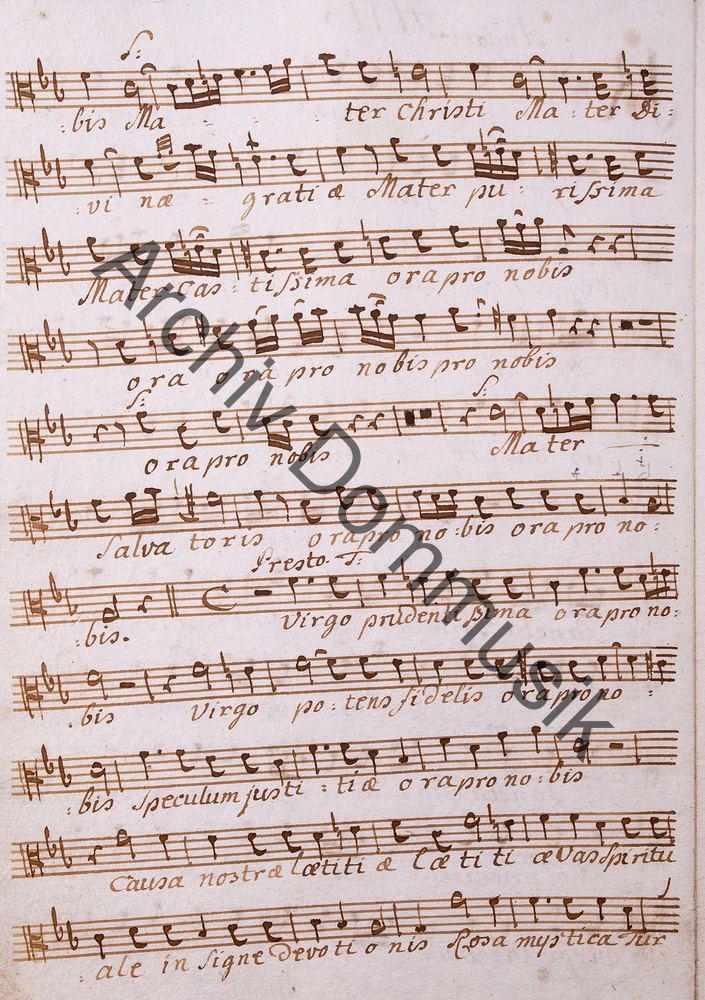 S:
:bis Ma - - - ter Christi Ma : ter Di :
: vi næ - grati æ Mater pu : rissima
Mater Cas : tissima ora pro nobis
ora ora pro nobis pro nobis
S: S:
ora pro nobis Mater
Salva toris ora pro no : bis ora pro no :
Presto. T:
: bis. Virgo prudentissima ora pro no :
. bis Virgo po : tens fidelis ora pro no :
: bis speculum justi : tiæ ora pro no : bis
Causa nostræ lætiti æ læ ti ti æ Vas spiritu
: ale insigne devoti o nis Rosa mystica Tur
Archiv Dommusik